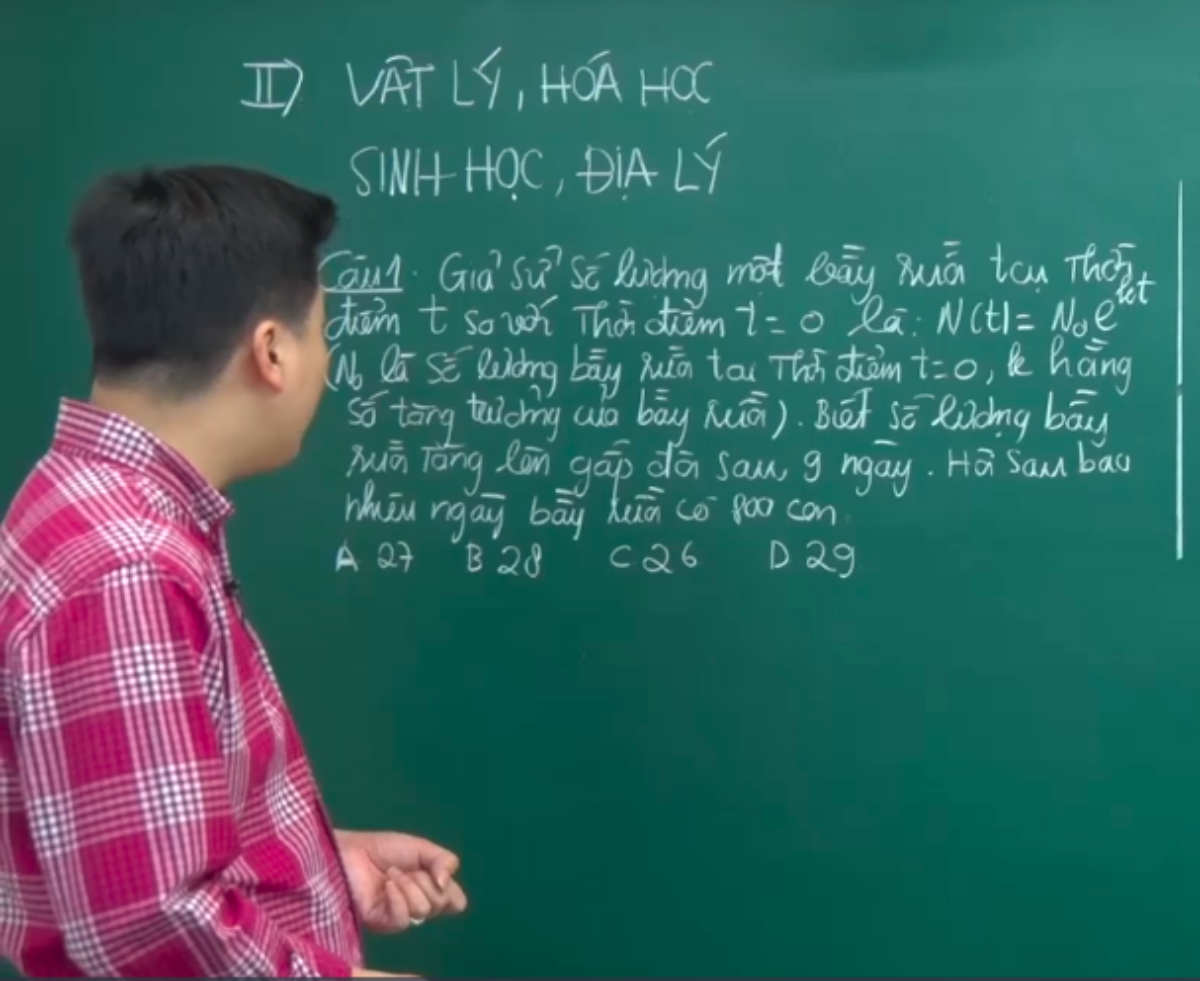 II) VẬT LÝ, HÓA HỌC
SINH HỌC, ĐỊA LÝ
Câu 1. Giả sử số lượng một bầy ruồi tại thời
điểm t so với thời điểm t = 0 là: N(t) = N₀e^kt
(N₀ là số lượng bầy ruồi tại thời điểm t=0, k hằng
số tăng trưởng của bầy ruồi). Biết số lượng bầy
ruồi tăng lên gấp đôi sau 9 ngày. Hỏi sau bao
nhiêu ngày bầy ruồi có 800 con
A 27 B 28 C 26 D 29